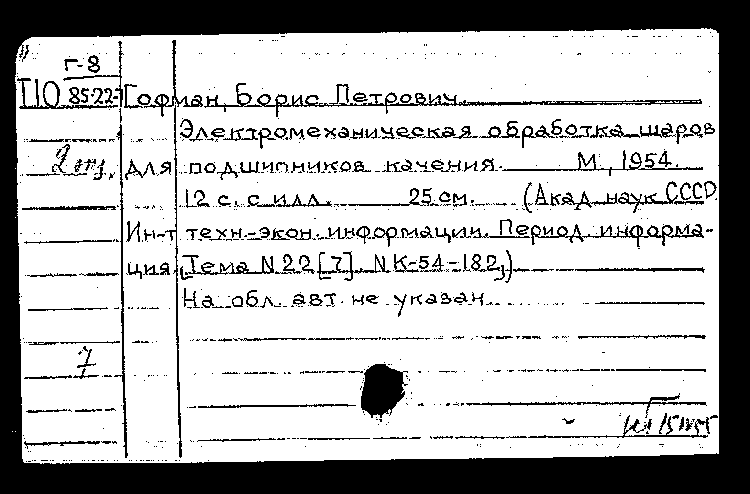 Г-8
П0 85-22-7 Гофман, Борис Петрович.
Электромеханическая обработка шаров
2 экз. для подшипников качения. М., 1954.
12 с. с илл. 25 см. (Акад. наук СССР.
Ин-т техн.-экон. информации. Период. информа-
ция. Тема N 22 [7]. N К-54-182.)
На обл. авт. не указан.
7